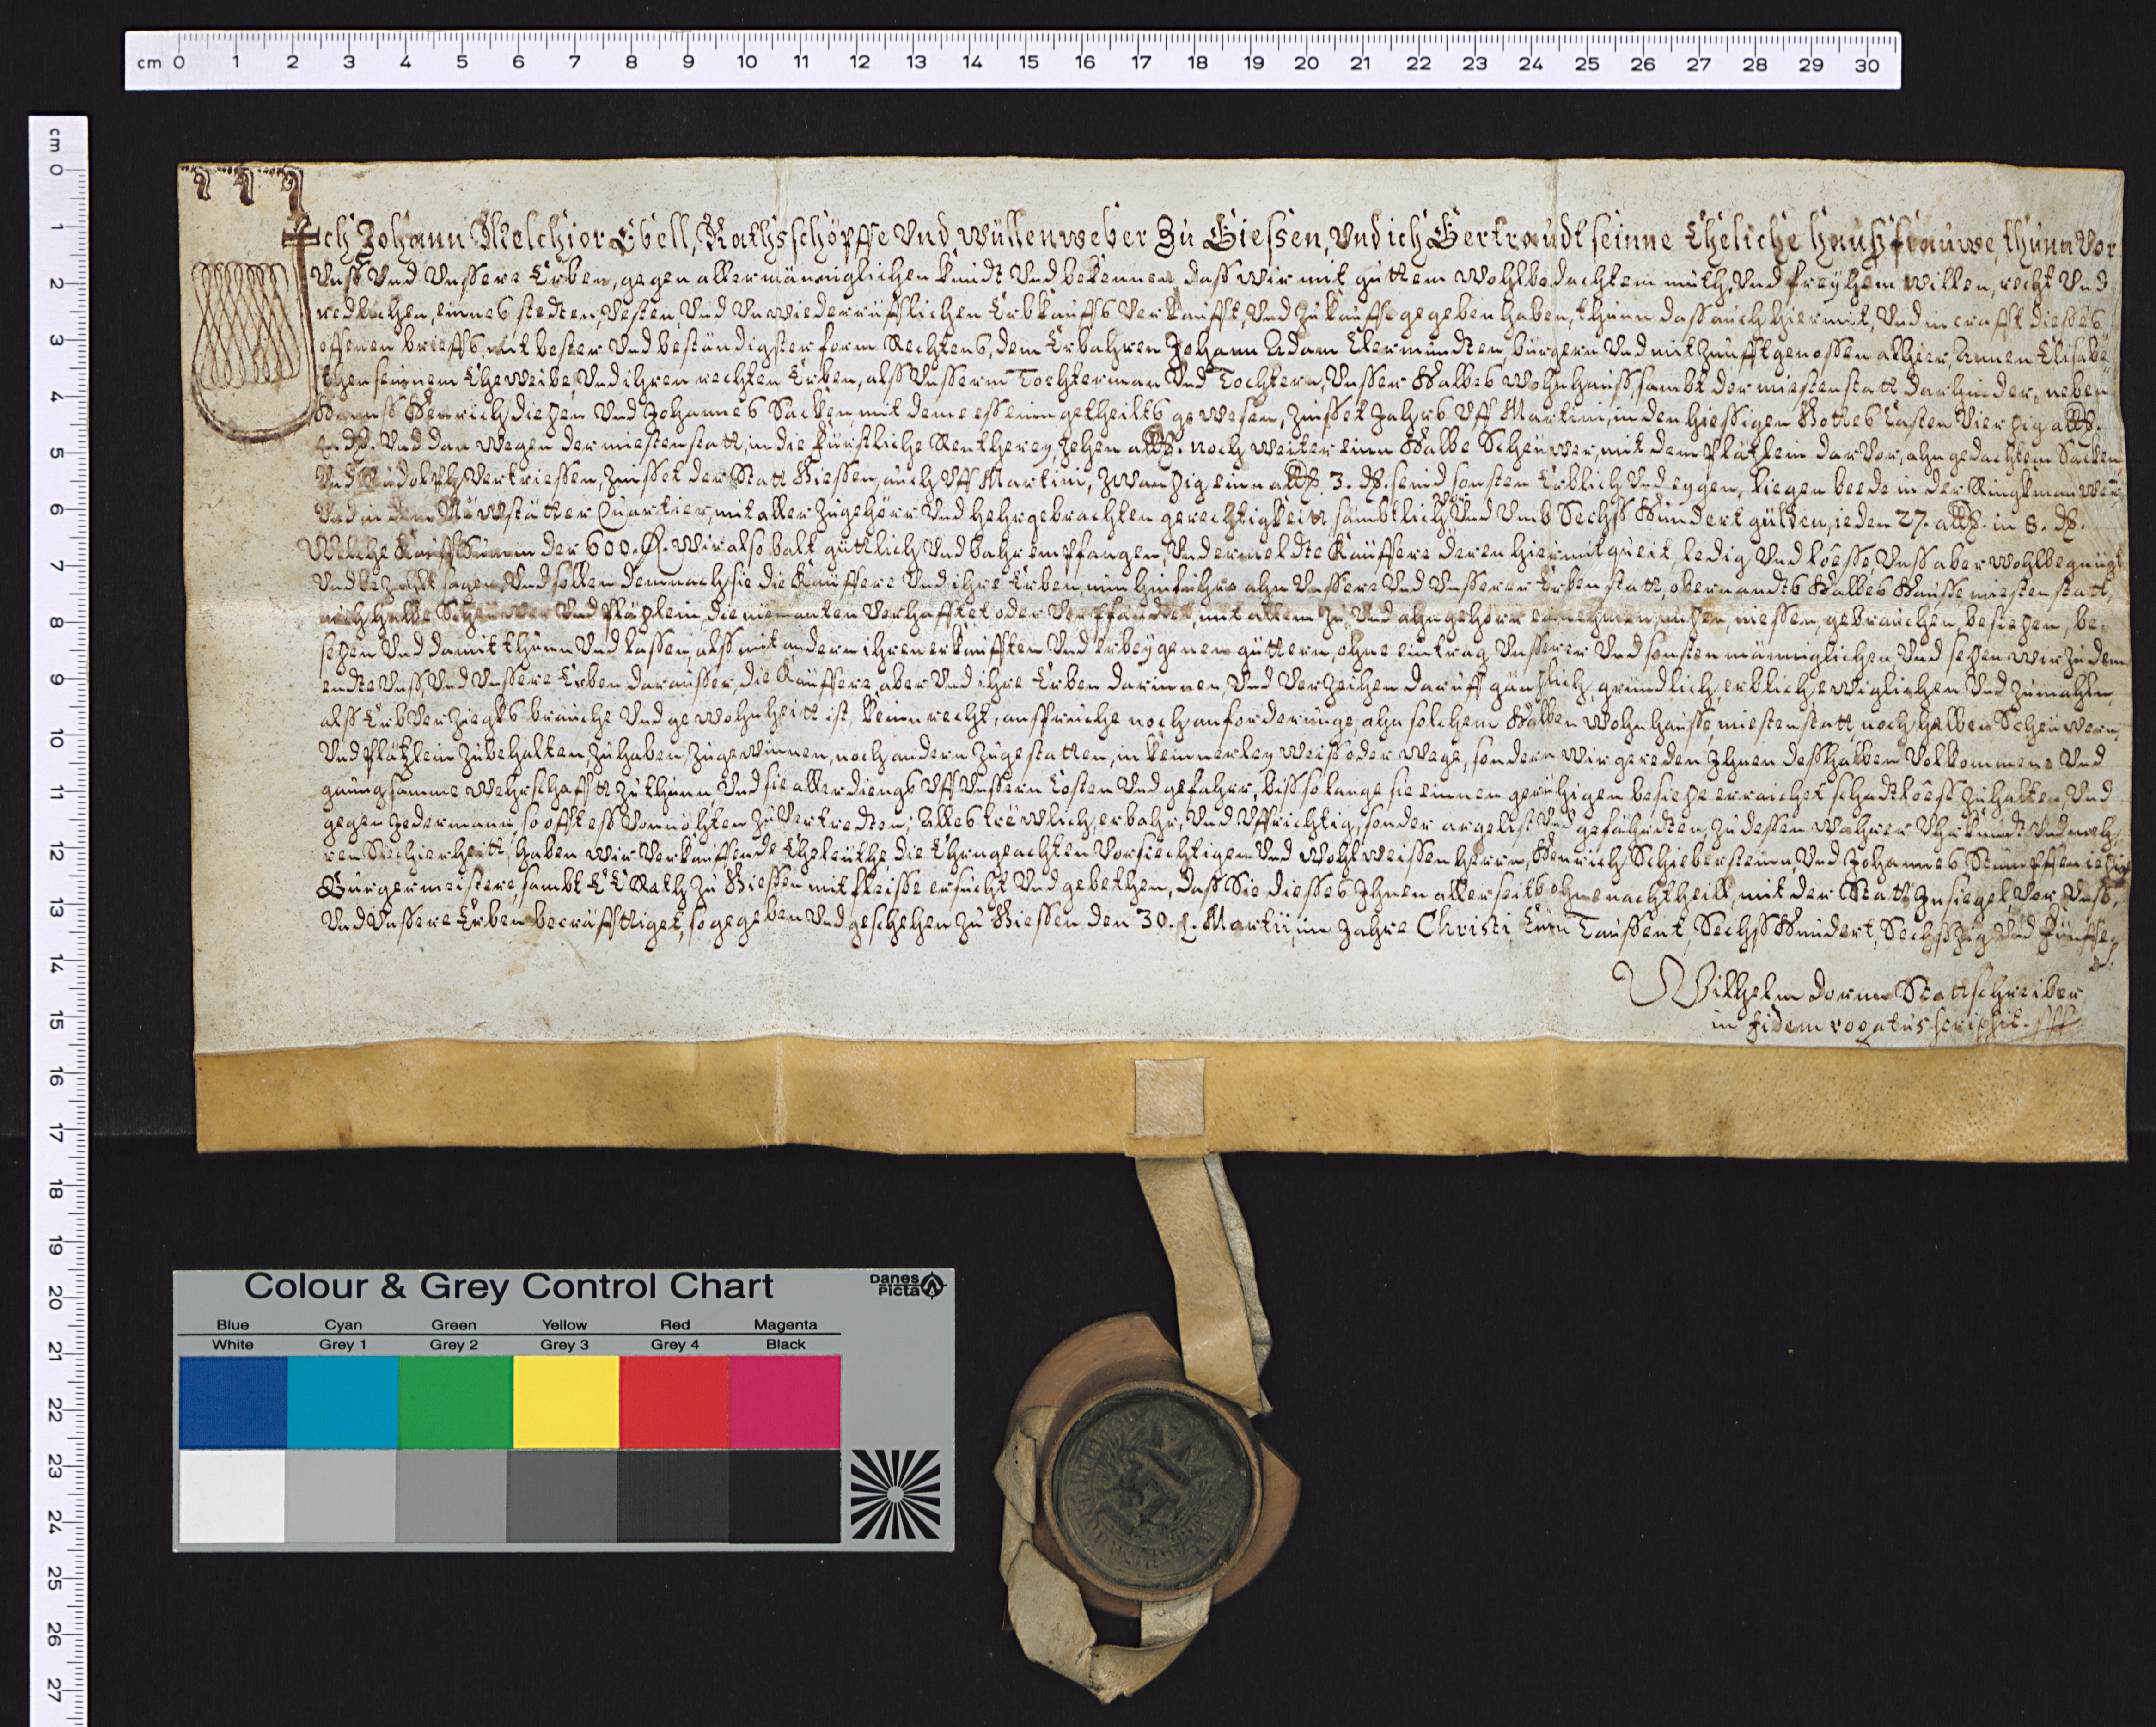 Ich Johann Melchior Ebell, Rathsschöpffe Und wüllenweber Zu Giessen, Und ich Gertraudt seinne Eheliche haußfrauwe, thunn Vor
Unß Und Unssere Erben, gegen allermänniglichen kundt Und bekennen, daß wir mit guttem wohlbedachtem muth, Und freyhem willen, recht Und
redlichen, eines stedten, Vesten, Und Unwiederrüfflichen Erbkauffs Verkaufft, Und zu kauffe gegeben haben, thunn daß auch hiermit, Und in crafft dießes
offenen brieffs, mit bester Und beständigster form Rechtens, dem Erbahren Johann Adam Clermundten, bürgern Und mitzunfftgenossen alhier, Annen Elisabe
then seinnem Eheweibe, Und ihren rechten Erben, alß Unßerm Tochterman Und Tochtern, Unsser Halbes wohnhauß, sambt der miestenstatt darhinder, neben
Hannß Henrich Und Johannes Sacken, mit deme es ein getheilts gewesen, zinsset Jahrs Uff Martini, in den hiessigen Gottes Casten Vierzig alb.
Und dan wegen der miestenstatt, in die Fürstliche Rentherey zehen alb. noch weiter einn Halbe Scheuwer, mit dem Plätzlein darvor, ahn gedachtem Sacken
Und Rudolph Vertriessen, zinsset der Statt Giessen, auch Uff Martini, zwanzig einn alb. 3. d. seind sonsten Erblich Und eygen, liegen beede in der Ringkmauwern
Und in dem Neuwstätter Quartier, mit aller zugehörr Und hehrgebrachten gerechtigkeitt, sämbtlich Umb Sechß Hundert gülden, ieden 27. alb. in 8. d.
Welche Kauffsumm der 600. fl. wir also balt güttlich Und bahr empfangen, Undermeldte Käuffere deren hiermit queit, ledig Und loesse, Unß aber wohlbegnügt
Und bezahlt sagen, Und sollen demnach sie die Käuffere Und ihre Erben, nun hinführo ahn Unssere Und Unsserer Erben statt, obernandts Halbes Hauße, miestenstatt,
auch halbe Scheuwer Und Pläzlein, die niemanten Verhafftet oder Verpfändet, mit allem zu, Und ahngehörr einnehmen, nuzen, niessen, gebrauchen, besitzen, be-
sezen Und damit thunn Und lassen, alß mit andern ihren erkaufften Und erbeygenen güttern, ohne eintrag Unsserer Und sonsten männiglichen, Und sezen wir zu dem
endte Unß, Und Unssere Erben daraußer, die Käuffere aber Und ihre Erben darinnen, Und Verzeihen daruff gänzlich, gründlich, erblich, ewiglichen Und zumahln,
alß Erbverziegks brauche Und gewohnheitt ist, kein recht, anspruche noch anforderunge, ahn solchem Halben wohnhausse, miestenstatt noch halben Scheuwern,
Und Plätzlein zubehalten, zuhaben, zugewinnen, noch andern zugestatten, in keinnerley weiß oder wege, sondern wir gereden Ihnen deßhalben Volkommene Und
gnungsamme wehrschafftt zuthunn, Und sie aller diengs Uff Unssern Costen Und gefahr, biß so lange sie einnen gerühigen besitze erreichet, schadtloeß zuhalten, Und
gegen Jedermann, so offt eß Vonnöhten zu Vertredten; Alles trewlich, erbahr, Und Uffrichtig, sonder argelist Und gefährdten, zu dessen wahrer Uhrkundt Und meh-
rer Siecherheitt, haben wir Verkauffende Eheleuthe die Ehrngeachten Vorsiechtigen Und Wohlweissen herrn, Henrich Schiebersteinn, Und Johannes Stumpffen iezige
Burgermeistere, sambt E E Rath zu Giessen mit fleisse ersucht Und gebethen, daß Sie dießes Ihnen allerseits ohne nachtheill, mit der Statt Insiegel, Vor Unß,
Und Unssere Erben becräfftiget, so gegeben Und geschehen zu Giessen den 30. Martii, im Jahre Christi Ein Taußent, Sechß Hundert, Sechßzig Und Fünffe
Wilhelm Stattschreiber
in fidem rogatus scripsit.
cm 0 1 2 3 4 5 6 7 8 9 10 11 12 13 14 15 16 17 18 19 20 21 22 23 24 25 26 27 28 29 30
cm 0 1 2 3 4 5 6 7 8 9 10 11 12 13 14 15 16 17 18 19 20 21 22 23 24 25 26 27
Colour & Grey Control Chart
Danes
Picta
Blue Cyan Green Yellow Red Magenta
White Grey 1 Grey 2 Grey 3 Grey 4 Black